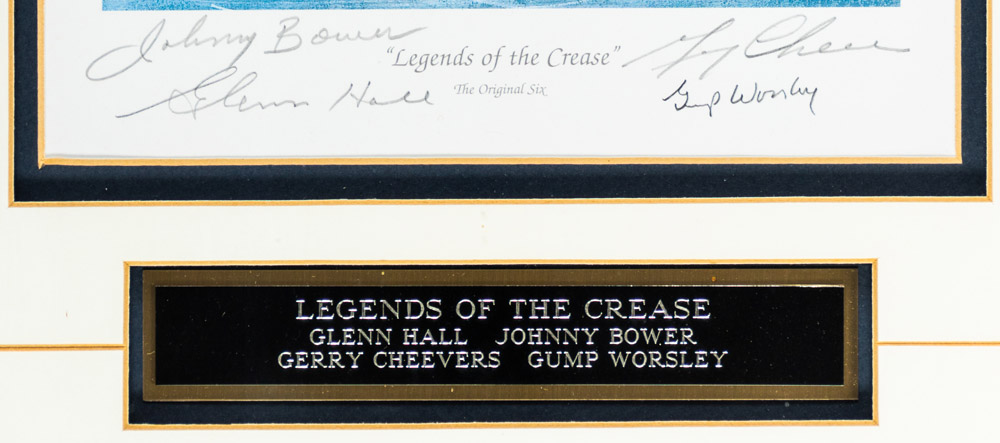 Johnny Bower
"Legends of the Crease"
Gerry Cheevers
Glenn Hall
The Original Six
Gump Worsley
LEGENDS OF THE CREASE
GLENN HALL JOHNNY BOWER
GERRY CHEEVERS GUMP WORSLEY